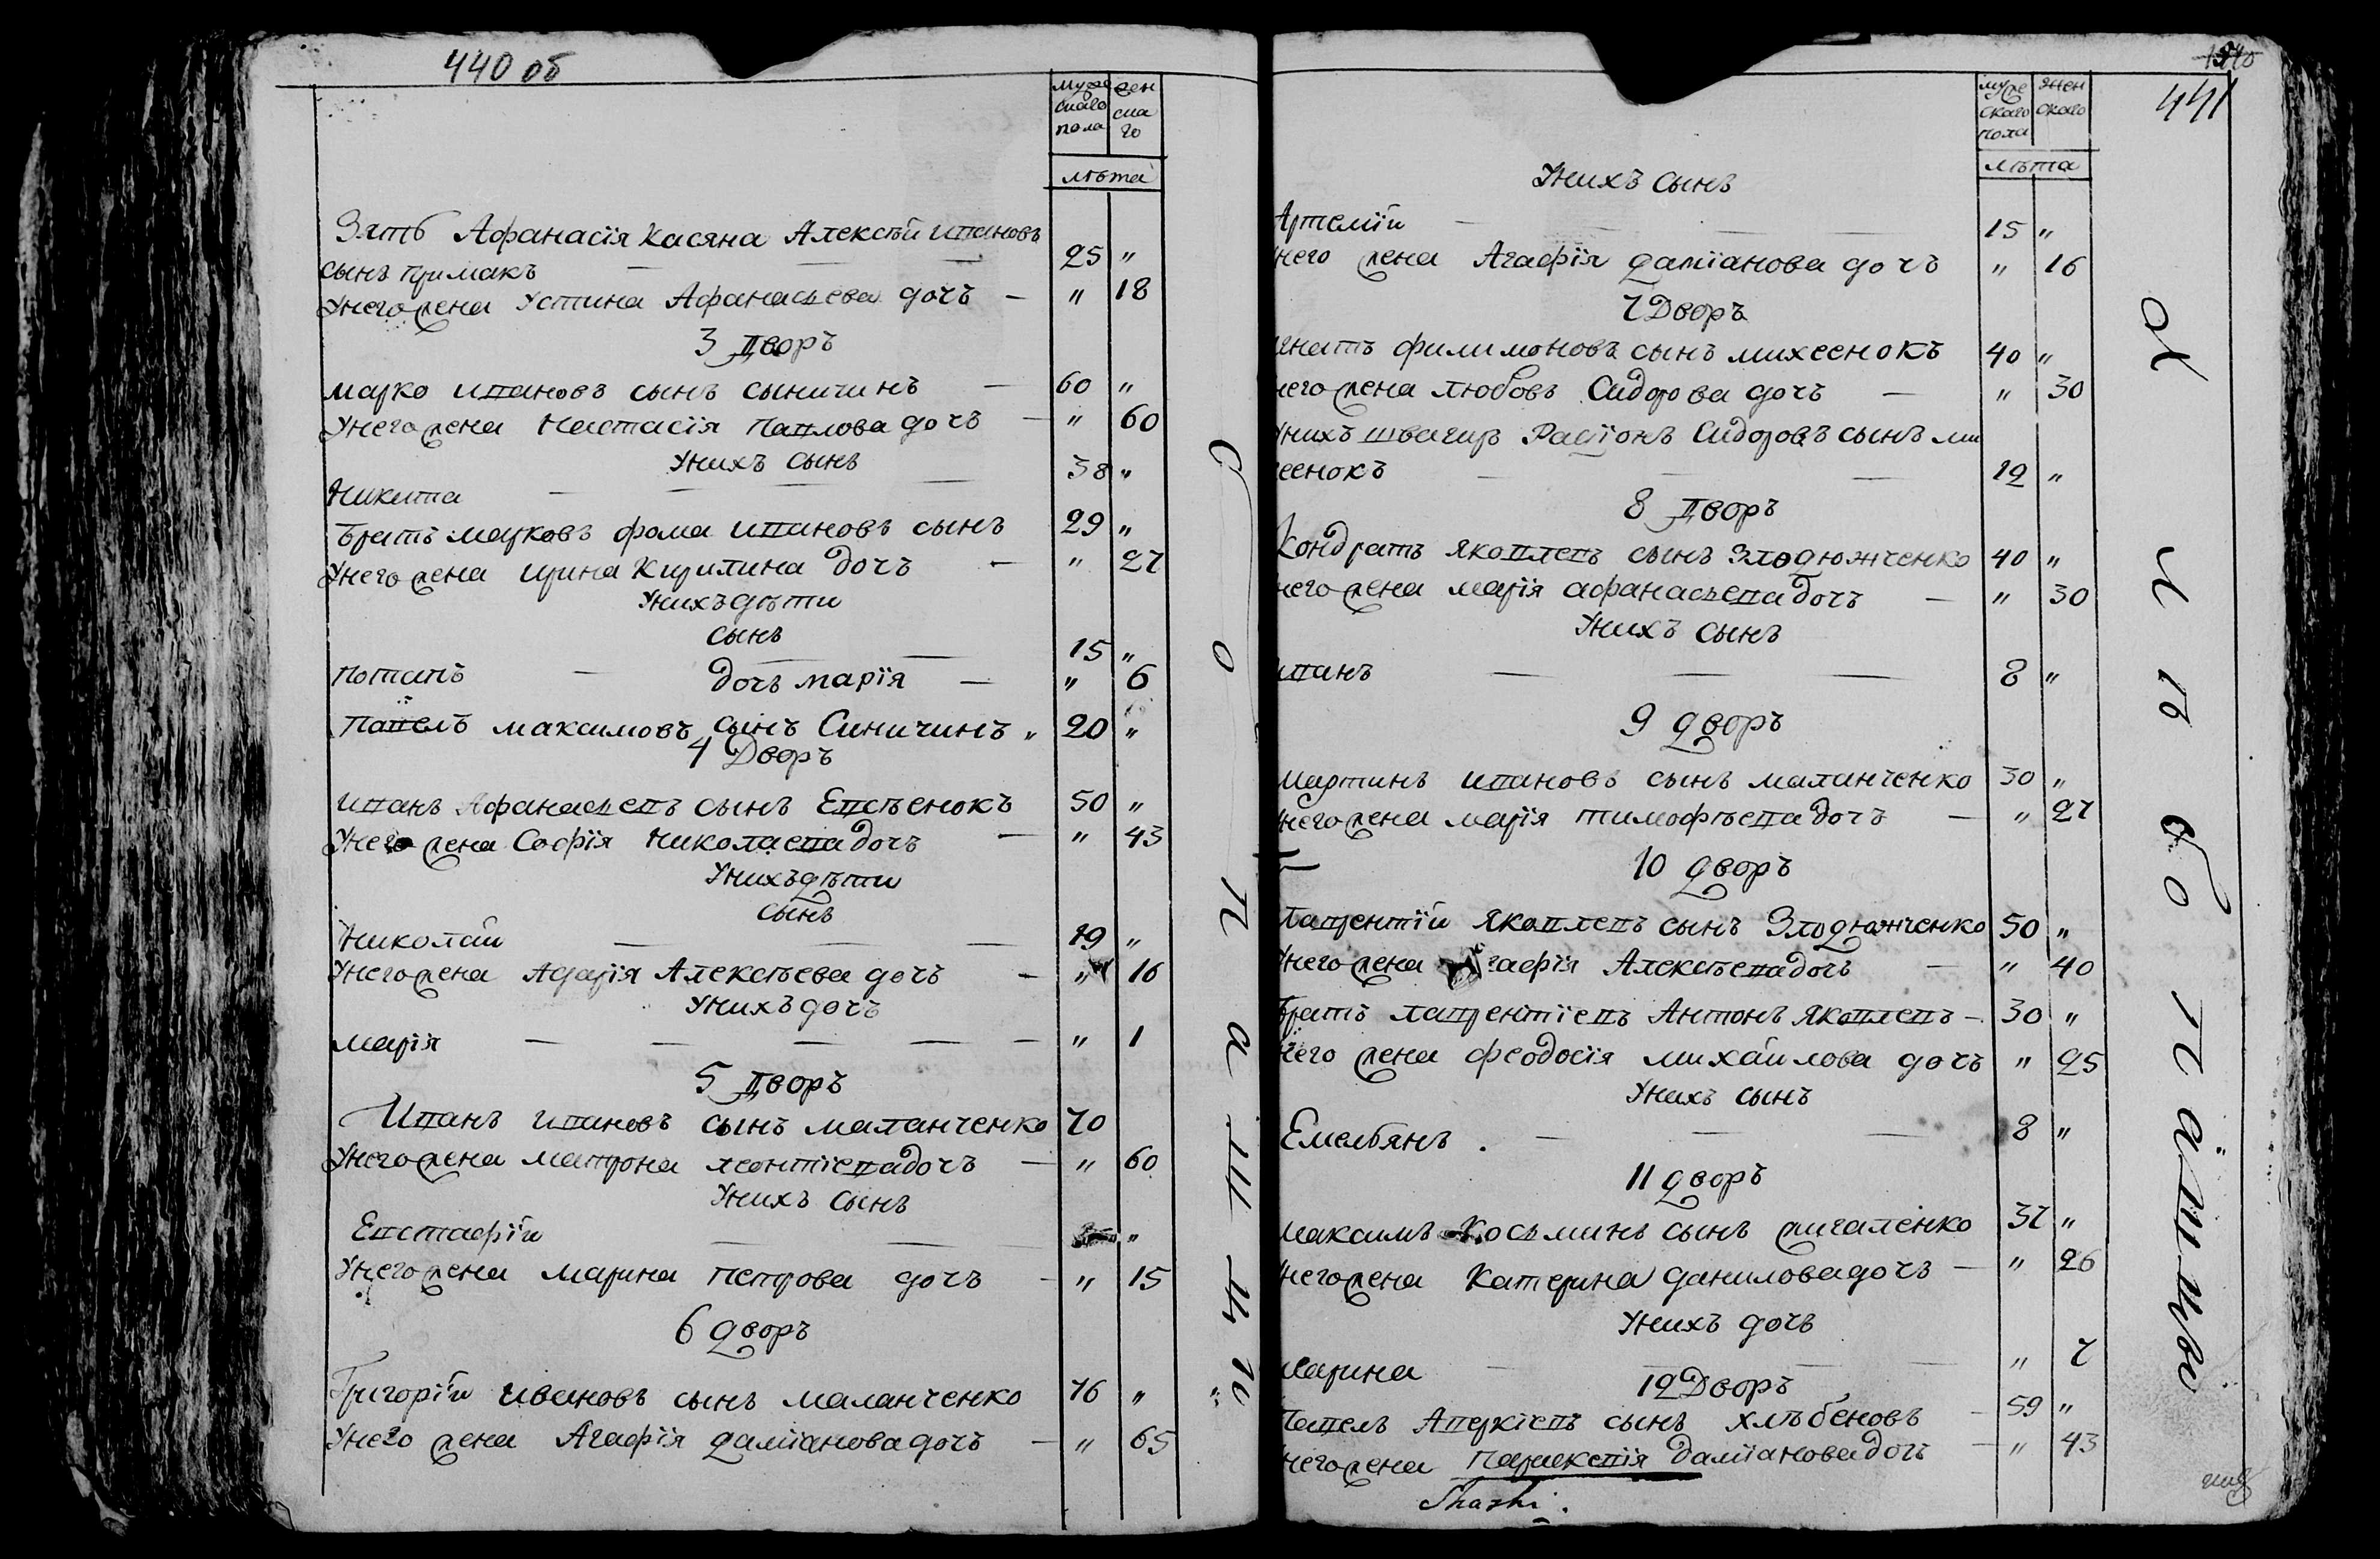 440 об
мужескаго пола
женскаго
лѣта
Зять Афанасія Касяна Алексѣй Ивановъ
сынъ примакъ — — — 25 "
Унего жена Устина Афанасьева дочъ — " 18
3 дворъ
Марко Ивановъ сынъ Сыничинъ — 60 "
Унего жена Настасія Павлова дочъ — " 60
Унихъ сынъ
Никита — — — — 38 "
Братъ Марковъ Фома Ивановъ сынъ 29 "
Унего жена Ирина Кирилина дочъ — " 27
Унихъ дѣти
сынъ
Потапъ — — — 15 "
дочъ Марія — " 6
Павелъ Максимовъ сынъ Синичинъ " 20 "
4 Дворъ
Иванъ Афанасьевъ сынъ Евсѣенокъ 50 "
Унего жена Софія Николаева дочъ — " 43
Унихъ дѣти
сынъ
Николай — — — 19 "
Унего жена Адарія Алексѣева дочъ — " 16
Унихъ дочъ
Марія — — — — — " 1
5 дворъ
Иванъ Ивановъ сынъ Маланченко 70
Унего жена Матрона Леонтіева дочъ — " 60
Унихъ сынъ
Евстафій — — "
Унего жена Марина Петрова дочъ — " 15
6 дворъ
Григорій Ивановъ сынъ Маланченко 76 "
Унего жена Агафія Даміанова дочъ — " 65
С о п а ш н ю
441
мужескаго пола
женскаго
лѣта
Унихъ сынъ
Артемій — — — 15 "
него жена Агафія Даміанова дочъ " 16
7 Дворъ
гнатъ Филимоновъ сынъ Михеенокъ 40 "
него жена Любовь Сидорова дочъ — " 30
Унихъ швагиръ Расіонъ Сидоровъ сынъ Ми
хеенокъ — — — 12 "
8 дворъ
Кондратъ Яковлевъ сынъ Злодюжченко 40 "
него жена Марія Афанасьева дочъ — " 30
Унихъ сынъ
Иванъ — — — 8 "
9 дворъ
Мартинъ Ивановъ сынъ Маланченко 30 "
Унего жена Марія Тимофѣева дочъ — " 27
10 дворъ
Лаврентій Яковлевъ сынъ Злодюжченко 50 "
Унего жена Агафія Алексѣева дочъ — " 40
Братъ Лаврентіевъ Антонъ Яковлевъ — 30 "
него жена Феодосія Михайлова дочъ " 25
Унихъ сынъ
Емельянъ — — — 8 "
11 дворъ
Максимъ Косьминъ сынъ Жигаленко 37 "
Унего жена Катерина Данилова дочъ — " 26
Унихъ дочъ
Марина — — — — " 7
12 Дворъ
Павелъ Аверкіевъ сынъ Хлѣбеновъ — 59 "
Унего жена Параксевія Даміанова дочъ — " 43